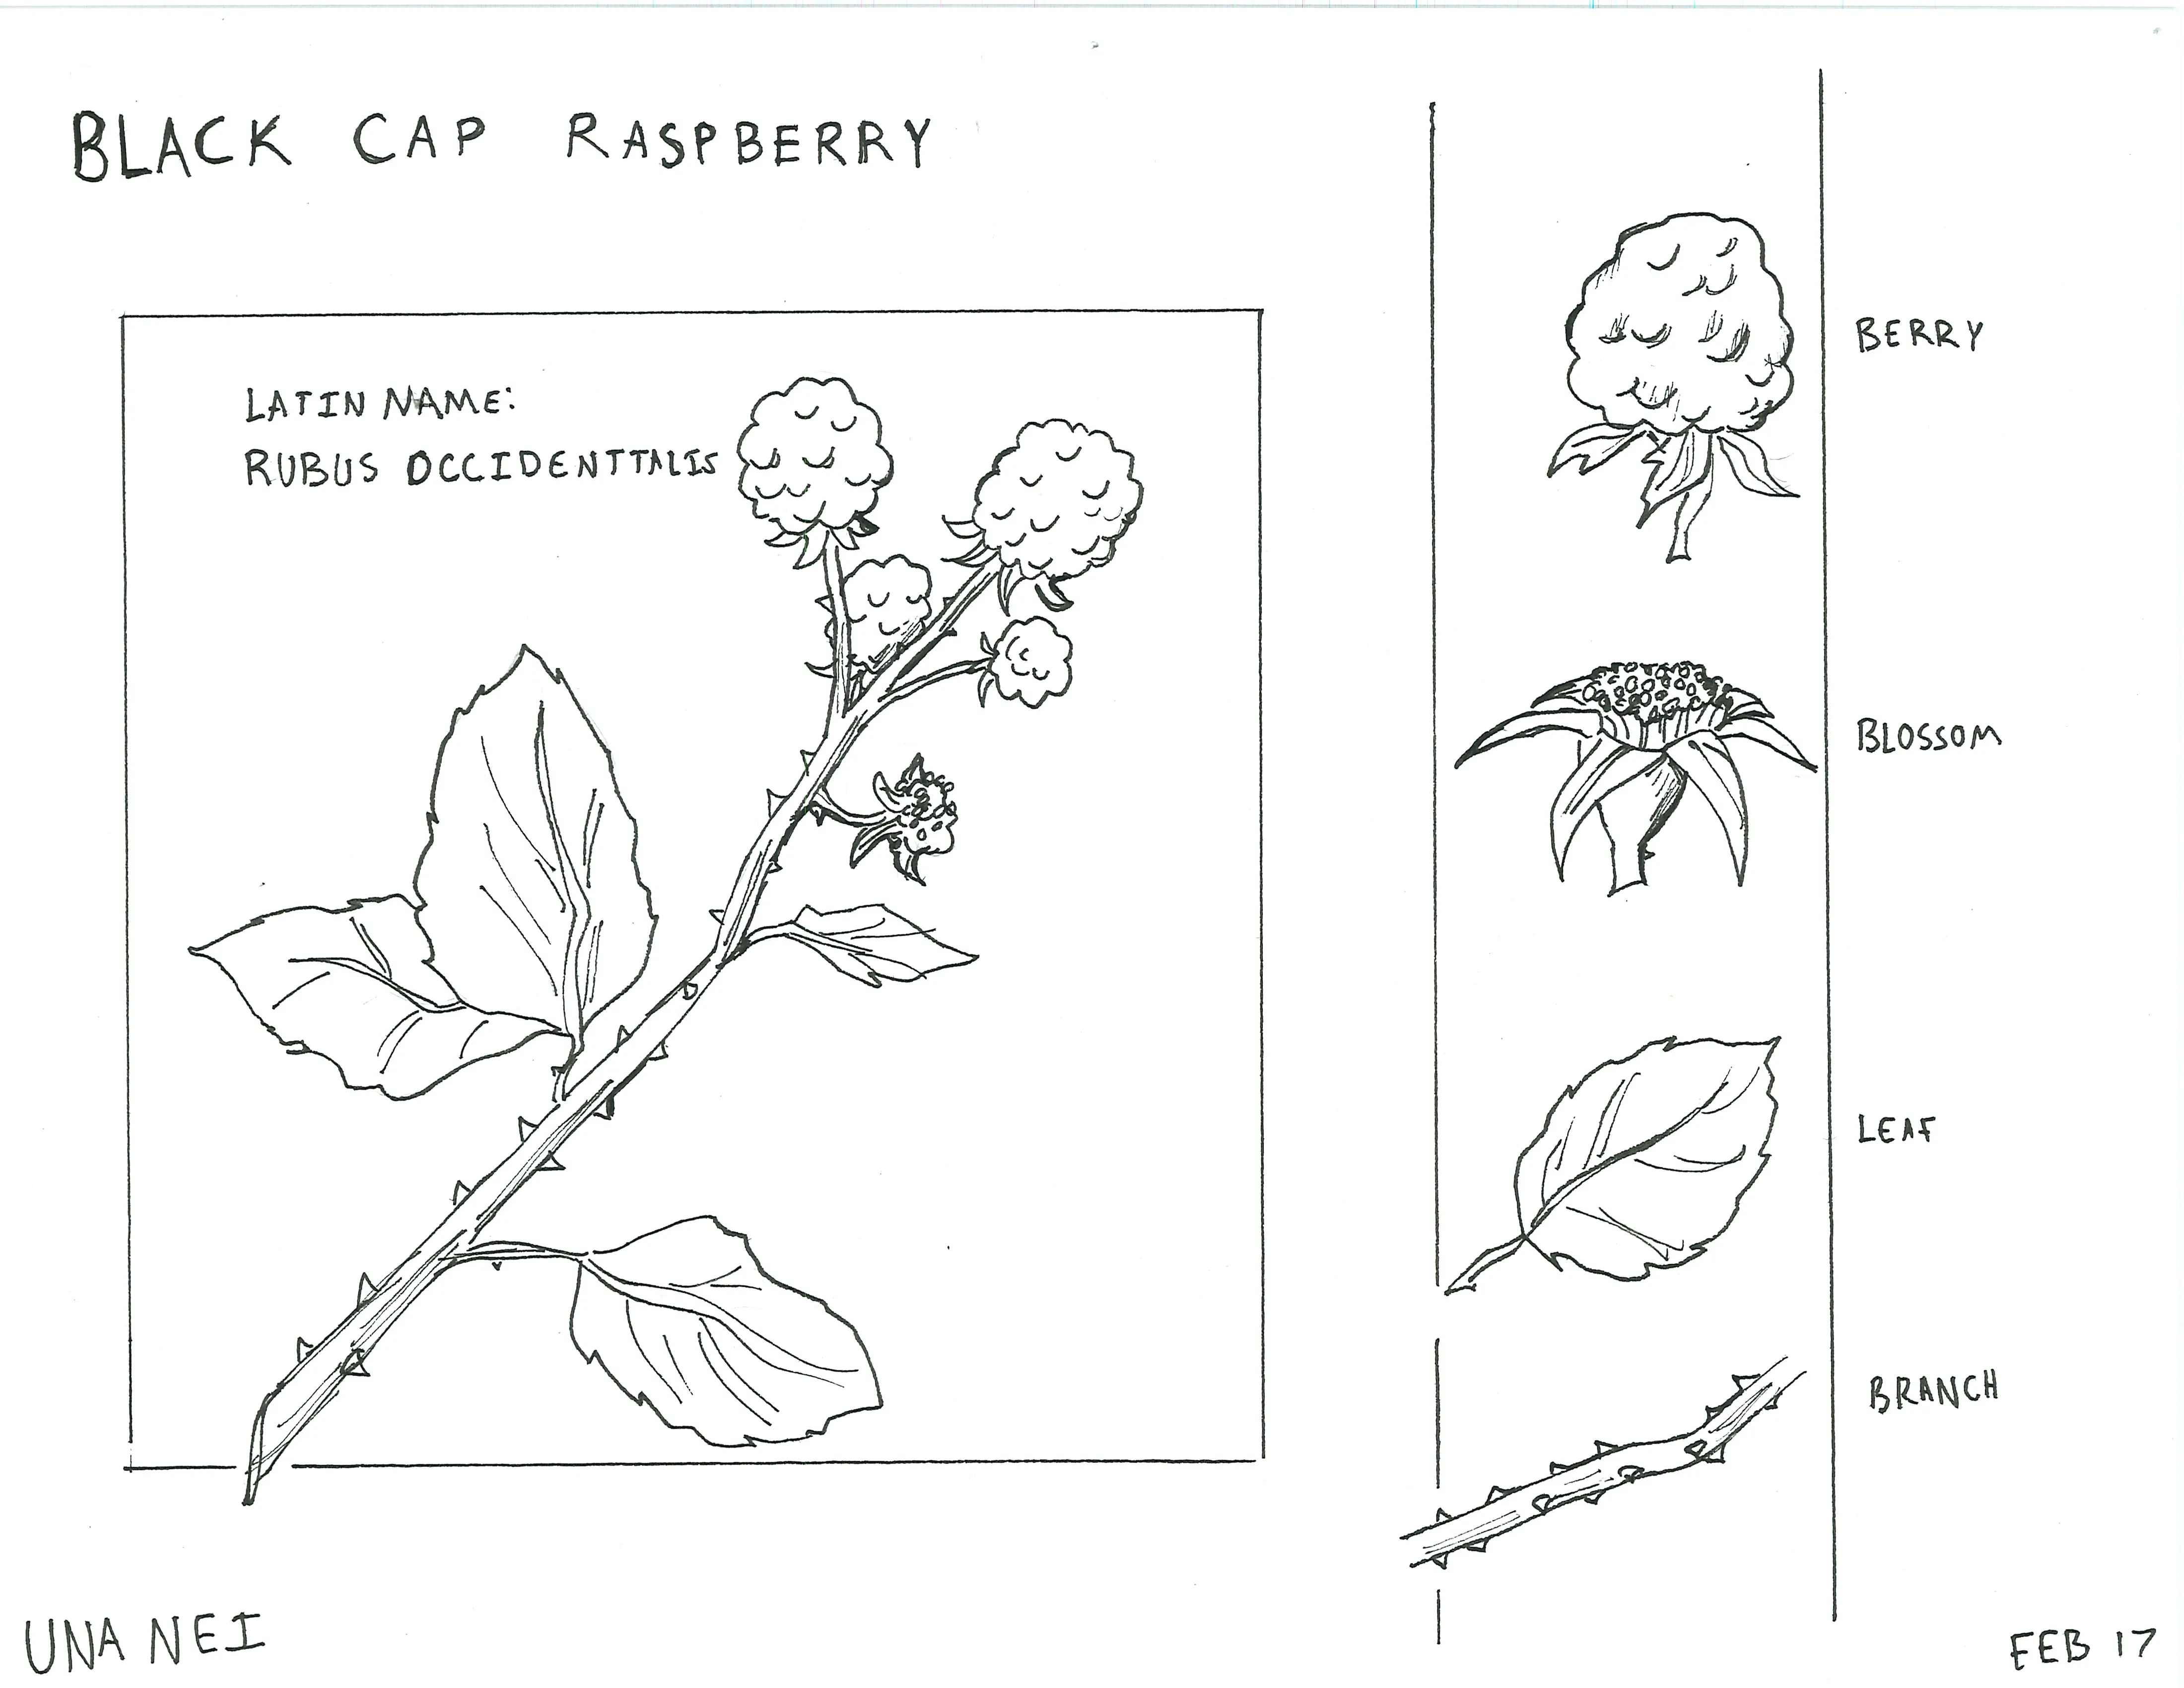 BLACK CAP RASPBERRY
LATIN NAME:
RUBUS OCCIDENTTALIS
BERRY
BLOSSOM
LEAF
BRANCH
UNA NEI
FEB 17